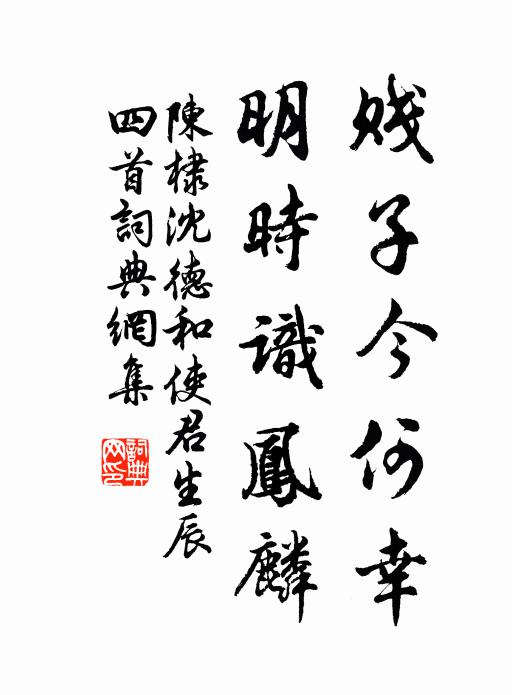 賤子今何幸
明時識鳳麟
陳棣沈德和使君生辰
四首詞典網集
詞典網印